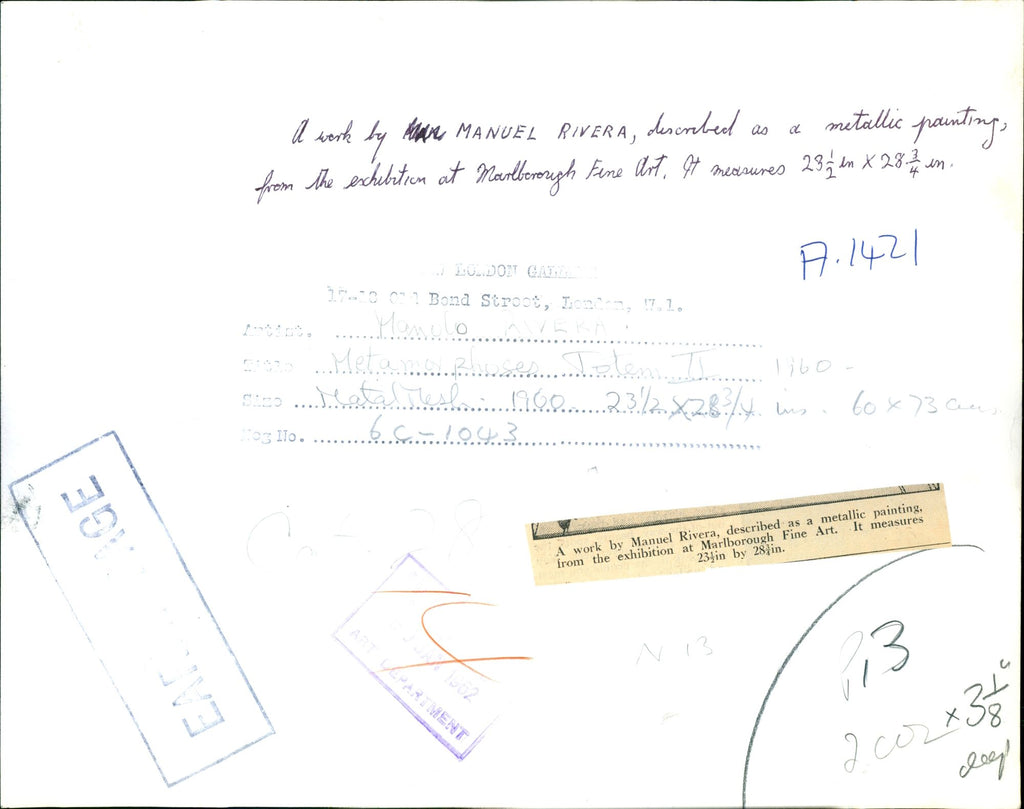 A work by MANUEL RIVERA, described as a metallic painting,
from the exhibition at Marlborough Fine Art. It measures 23 1/2 in X 28 3/4 in.
A.1421
LONDON
17-18 Old Bond Street, London, W.1.
Artist. Manolo RIVERA.
Title Metamorphoses Totem II 1960 -
Size Metal Mesh. 1960 23 1/2 x 28 3/4 ins. 60 x 73 cms
Neg No. 6C-1043
A work by Manuel Rivera, described as a metallic painting,
from the exhibition at Marlborough Fine Art. It measures
23½in by 28¾in.
1962
ART DEPARTMENT
N 13
P.13
x 3 1/8"
deep